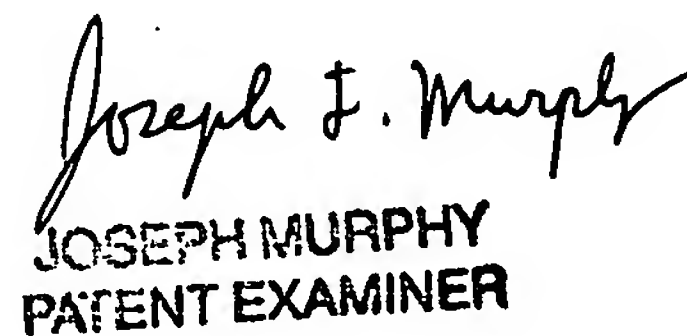 Joseph F. Murphy
JOSEPH MURPHY
PATENT EXAMINER